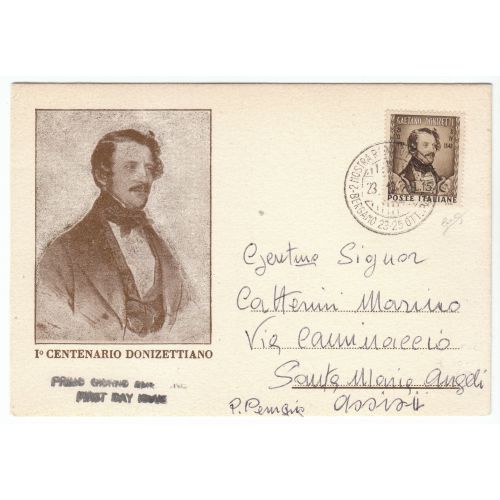 GAETANO DONIZETTI
1848
L. 15
POSTE ITALIANE
2ª MOSTRA
BERGAMO 23-25 OTT.
23
Gentile Signor
Catterini Marino
Via Caminaccio
Santa Maria Angeli
P. Perugia Assisi
Iº CENTENARIO DONIZETTIANO
PRIMO GIORNO
FIRST DAY ISSUE